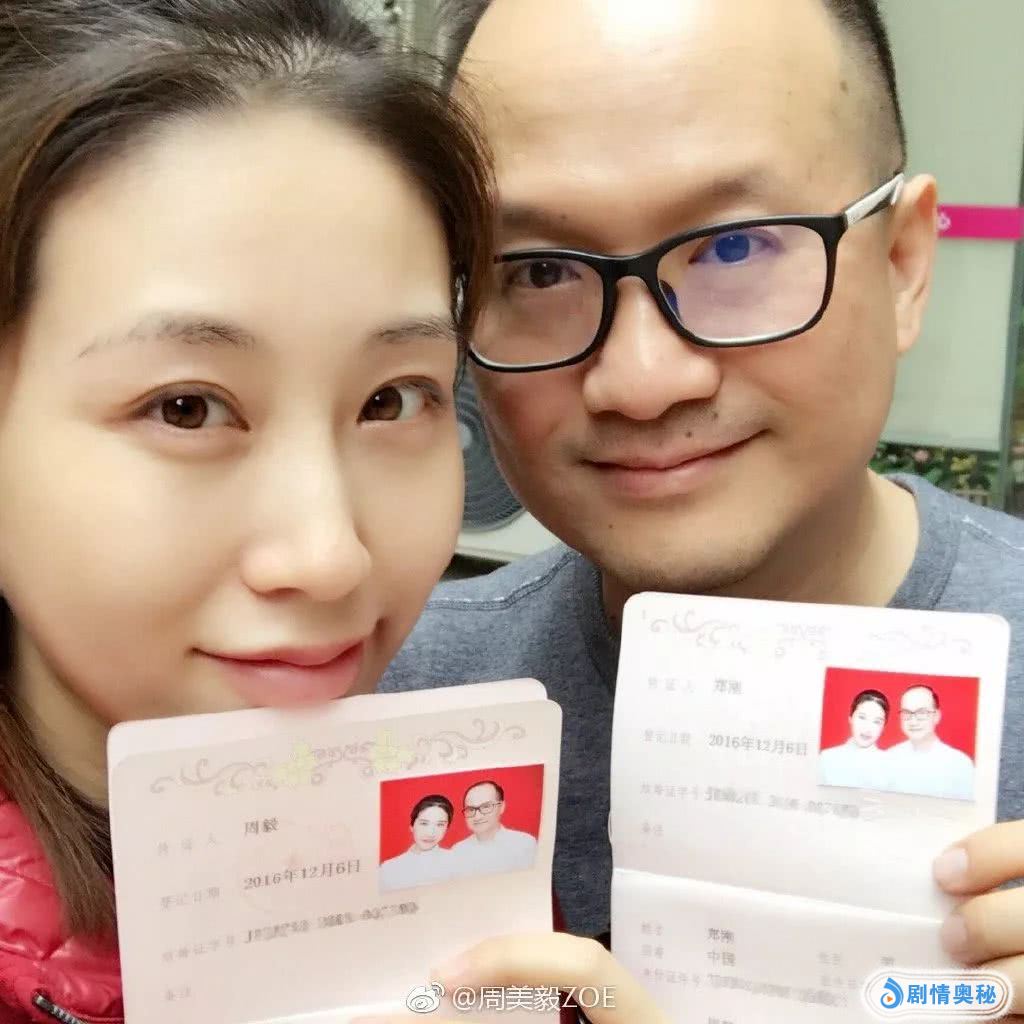 持证人 周毅
登记日期 2016年12月6日
结婚证字号
备注
持证人 郑刚
登记日期 2016年12月6日
结婚证字号
备注
姓名 郑刚
国籍 中国
性别 男
身份证件号
@周美毅ZOE
剧情奥秘